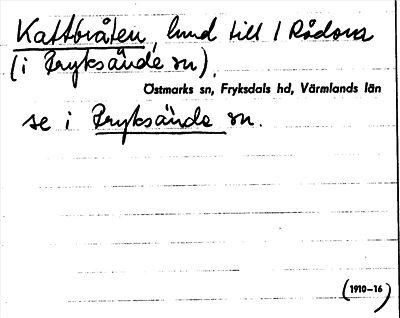 Kattbråten, hmd till 1 Rådom
(i Fryksände sn),
Östmarks sn, Fryksdals hd, Värmlands län
se i Fryksände sn.
(1910–16)